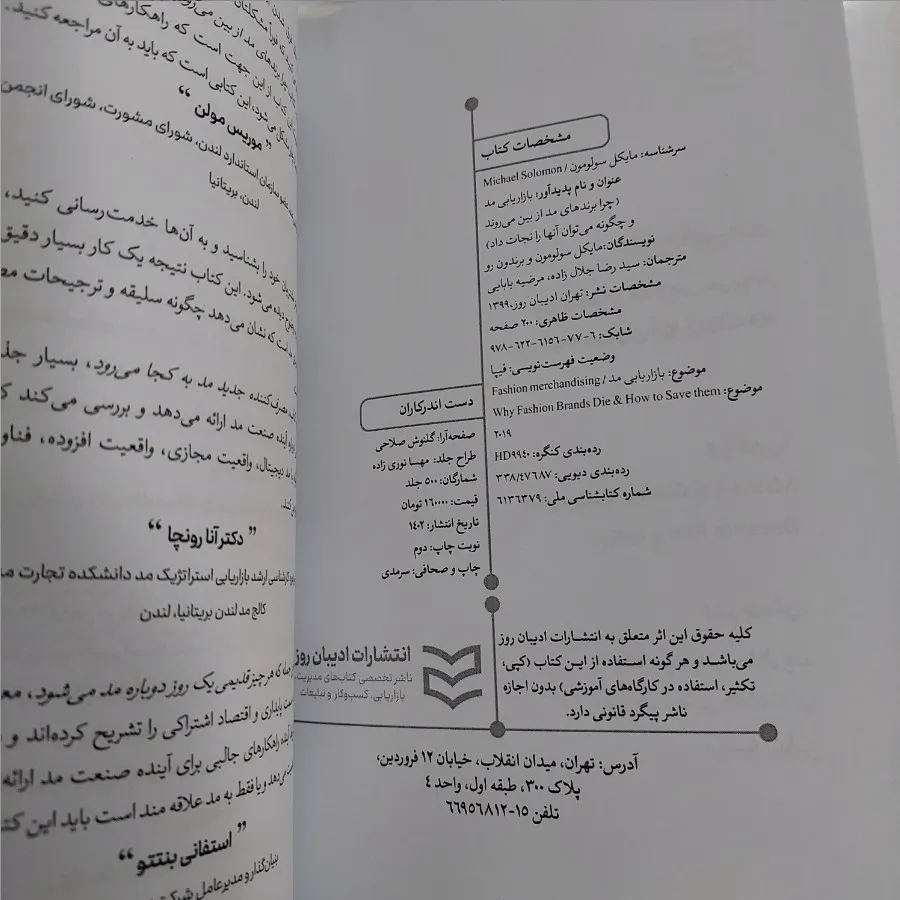 مشخصات کتاب
سرشناسه: مایکل سولومون / Michael Solomon
عنوان و نام پدیدآور: بازاریابی مد
(چرا برندهای مد از بین می‌روند
و چگونه می‌توان آنها را نجات داد)
نویسندگان: مایکل سولومون و برندون رو
مترجمان: سید رضا جلال زاده، مرضیه بابایی
مشخصات نشر: تهران ادیبان روز، ۱۳۹۹
مشخصات ظاهری: ۲۰۰ صفحه
شابک: ۶-۷۷-۶۱۵۶-۶۲۲-۹۷۸
وضعیت فهرست‌نویسی: فیپا
موضوع: بازاریابی مد / Fashion merchandising
موضوع: Why Fashion Brands Die & How to Save them
۲۰۱۹
رده‌بندی کنگره: HD۹۹۴۰
رده‌بندی دیویی: ۳۳۸/۴۷۶۸۷
شماره کتابشناسی ملی: ۶۱۳۶۳۷۹
دست اندرکاران
صفحه‌آرا: گلنوش صلاحی
طراح جلد: مهسا نوری زاده
شمارگان: ۵۰۰ جلد
قیمت: ۱۶۰۰۰۰ تومان
تاریخ انتشار: ۱۴۰۲
نوبت چاپ: دوم
چاپ و صحافی: سرمدی
کلیه حقوق این اثر متعلق به انتشارات ادیبان روز
می‌باشد و هر گونه استفاده از این کتاب (کپی،
تکثیر، استفاده در کارگاه‌های آموزشی) بدون اجازه
ناشر پیگرد قانونی دارد.
انتشارات ادیبان روز
ناشر تخصصی کتاب‌های مدیریت،
بازاریابی، کسب‌وکار و تبلیغات
آدرس: تهران، میدان انقلاب، خیابان ۱۲ فروردین،
پلاک ۳۰۰، طبقه اول، واحد ۴
تلفن ۱۵-۶۶۹۵۶۸۱۲
برندهای مد از بین می‌رو
کتاب از این جهت است که راهکارهای
می‌شود، این کتابی است که باید به آن مراجعه کنید.
” موریس مولن “
سازمان استاندارد لندن، شورای مشورت، شورای انجمن
لندن، بریتانیا
خود را بشناسید و به آن‌ها خدمت‌رسانی کنید،
دیده می‌شود. این کتاب نتیجه یک کار بسیار دقیق
است که نشان می‌دهد چگونه سلیقه و ترجیحات
مصرف‌کننده جدید مد به کجا می‌رود، بسیار
آینده صنعت مد ارائه می‌دهد و بررسی می‌کند
مد دیجیتال، واقعیت مجازی، واقعیت افزوده،
” دکتر آنا رونچا “
کارشناسی ارشد بازاریابی استراتژیک مد دانشکده تجارت
کالج مد لندن بریتانیا، لندن
که هر چیز قدیمی یک روز دوباره مد می‌شود،
پایداری و اقتصاد اشتراکی را تشریح کرده‌اند و
راهکارهای جالبی برای آینده صنعت مد ارائه
می‌دهد و یا فقط به مد علاقه مند است باید این
” استفانی بنتتو “
بنیان‌گذار و مدیرعامل شرکت